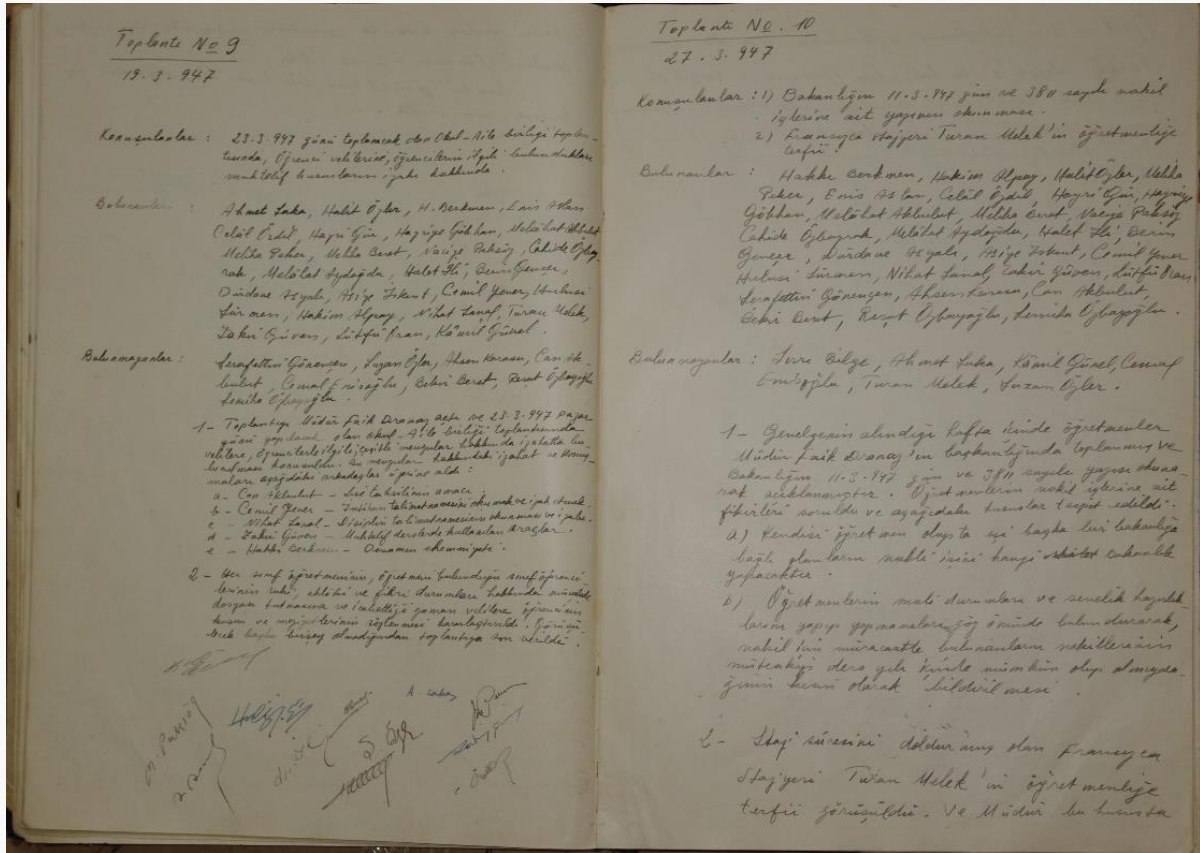 Toplantı No 9
19.3.947
Konuşulanlar : 23.3.947 günü toplanacak olan Okul-Aile birliği toplan-
tısında, Öğrenci velilerine, öğrencilerin ilgili bulundukları
muhtelif hususların izahı hakkında.
Bulunanlar : Ahmet Saka, Halit Özler, H. Berkmen, Enis Aslan
Celâl Özdil, Hayri Gür, Hayriye Gökhan, Melâhat Akbulut
Meliha Peker, Meliha Berat, Naciye Paksöz, Cahide Özbay-
rak, Melâhat Aydoğdu, Halet İlı, Berin Gençer,
Dürdane Asyalı, Asiye İskent, Cemil Yener, Hulusi
Sürmen, Hakim Alpay, Nihat Sanal, Turan Melek,
Zakir Güven, Lütfü Oran, Kâmil Günel.
Bulunmayanlar : Şerafettin Gönençen, Suzan Özler, Ahsen Karasu, Can Ak-
bulut, Cemal Eniboğlu, Bekir Berat, Reşat Özbayoğlu
Semiha Özbayoğlu.
1- Toplantıyı Müdür Faik Dranaz açtı ve 23.3.947 pazar
günü yapılacak olan okul-Aile birliği toplantısında
velilere, öğrencilerle ilgili çeşitli mevzular hakkında izahatta bu-
lunulması konuşuldu. Bu mevzular hakkındaki izahat ve konuş-
maları aşağıdaki arkadaşlar üzerine aldı :
a- Can Akbulut - Lise tahsilinin amacı
b- Cemil Yener - İmtihan talimatnamesini okumak ve izah etmek.
c- Nihat Sanal - Disiplin talimatnamesinin okunması ve izahı.
d- Zakir Güven - Muhtelif derslerde kullanılan araçlar.
e- Hakkı Berkmen - Devamın ehemmiyeti.
2- Her sınıf öğretmeninin, öğretmeni bulunduğu sınıf öğrenci-
lerinin ruhi, ahlâki ve fikri durumları hakkında
dosyası tutmasına ve icabettiği zaman velilere öğrencinin
kusur ve meziyetlerinin söylenmesi kararlaştırıldı. Görüşü-
lecek başka birşey olmadığından toplantıya son verildi.
N. Paksöz
Toplantı No. 10
27.3.947
Konuşulanlar : 1) Bakanlığın 11.3.947 gün ve 3811 sayılı nakil
işlerine ait yazının okunması.
2) Fransızca stajyeri Turan Melek'in öğretmenliğe
terfii.
Bulunanlar : Hakkı Berkmen, Hakim Alpay, Halit Özler, Meliha
Peker, Enis Aslan, Celâl Özdil, Hayri Gür, Hayriye
Gökhan, Melâhat Akbulut, Meliha Berat, Naciye Paksöz
Cahide Özbayrak, Melâhat Aydoğdu, Halet İlı, Berin
Gençer, Dürdane Asyalı, Asiye İskent, Cemil Yener
Hulusi Sürmen, Nihat Sanal, Zakir Güven, Lütfü Oran
Şerafettin Gönençen, Ahsen Karasu, Can Akbulut,
Bekir Berat, Reşat Özbayoğlu, Semiha Özbayoğlu.
Bulunmayanlar : Sırrı Bilge, Ahmet Saka, Kâmil Günel, Cemal
Eniboğlu, Turan Melek, Suzan Özler.
1- Genelgenin alındığı hafta içinde öğretmenler
Müdür Faik Dranaz'ın başkanlığında toplanmış ve
Bakanlığın 11.3.947 gün ve 3811 sayılı yazısı okuna-
rak açıklanmıştır. Öğretmenlerin nakil işlerine ait
fikirleri soruldu ve aşağıdaki hususlar tespit edildi.
a) Kendisi öğretmen olupta eşi başka bir bakanlığa
bağlı olanların nakli işini hangi bakanlık
yapacaktır.
b) Öğretmenlerin mali durumları ve senelik hazırlık-
larını yapıp yapmamaları göz önünde bulundurarak,
nakil için müracaatta bulunanların nakillerinin
müteakip ders yılı içinde mümkün olup olmayaca-
ğının kesin olarak bildirilmesi
2- Staj süresini doldurmuş olan Fransızca
Stajyeri Turan Melek'in öğretmenliğe
terfii görüşüldü. Ve Müdür bu hususta